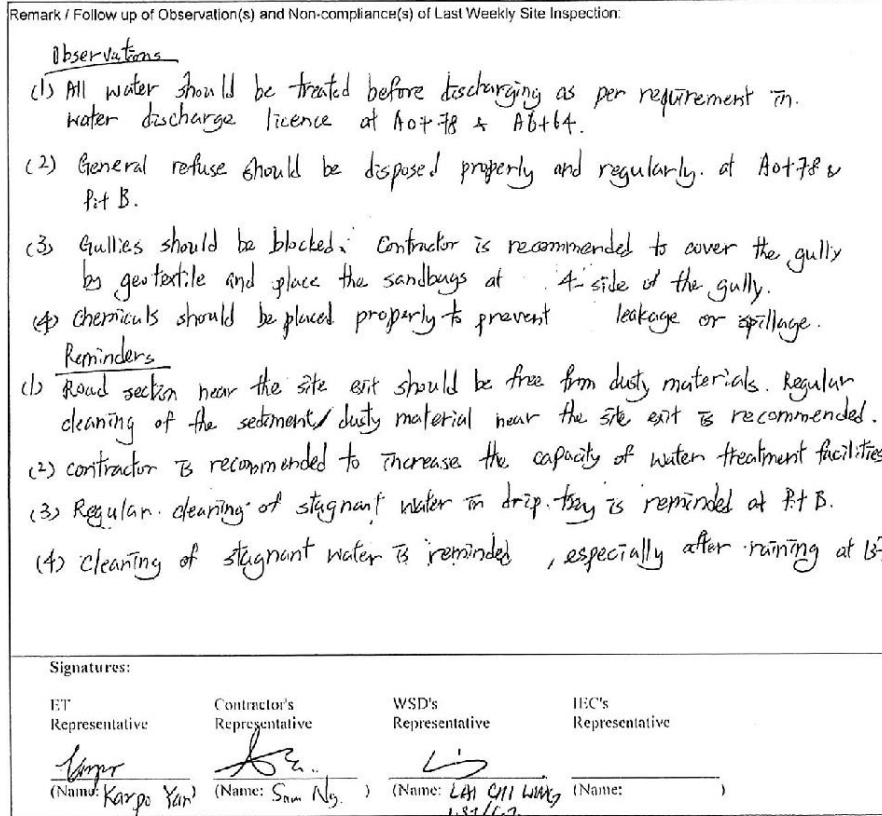 Remark / Follow up of Observation(s) and Non-compliance(s) of Last Weekly Site Inspection:
Observations
(1) All water should be treated before discharging as per requirement in
water discharge licence at A0+78 & A6+64.
(2) General refuse should be disposed properly and regularly. at A0+78 &
Pit B.
(3) Gullies should be blocked. Contractor is recommended to cover the gully
by geotextile and place the sandbags at 4-side of the gully.
(4) Chemicals should be placed properly to prevent leakage or spillage.
Reminders
(1) Road section near the site exit should be free from dusty materials. Regular
cleaning of the sediment/dusty material near the site exit is recommended.
(2) contractor is recommended to increase the capacity of water treatment facilities
(3) Regular cleaning of stagnant water in drip tray is reminded at Pit B.
(4) cleaning of stagnant water is reminded, especially after raining at
Signatures:
ET Contractor's WSD's IEC's
Representative Representative Representative Representative
(Name: Karpo Yan) (Name: Sam Ng. ) (Name: LAI CHI (Name: )